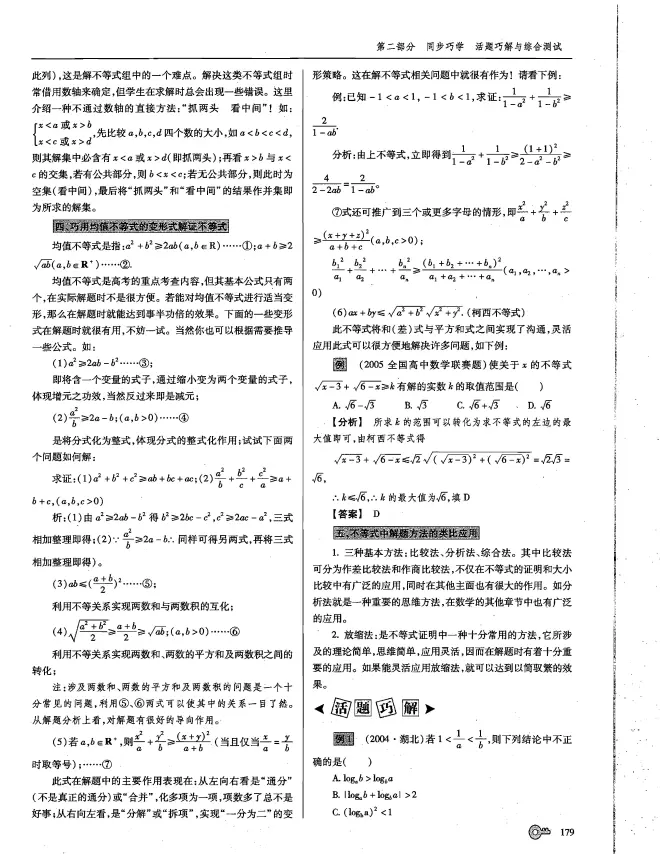 第二部分 同步巧学 活题巧解与综合测试
此列),这是解不等式组中的一个难点。解决这类不等式组时
常借用数轴来确定,但学生在求解时总会出现一些错误。这里
介绍一种不通过数轴的直接方法:“抓两头 看中间”! 如:
{x<a 或 x>b
x<c 或 x>d ,先比较 a,b,c,d 四个数的大小,如 a<b<c<d,
则其解集中必含有 x<a 或 x>d(即抓两头);再看 x>b 与 x<
c 的交集,若有公共部分,则 b<x<c;若无公共部分,则此时为
空集(看中间),最后将“抓两头”和“看中间”的结果作并集即
为所求的解集。
四、巧用均值不等式的变形式解证不等式
均值不等式是指:a²+b²≥2ab(a,b∈R)……①;a+b≥2
√ab(a,b∈R⁺)……②.
均值不等式是高考的重点考查内容,但其基本公式只有两
个,在实际解题时不是很方便。若能对均值不等式进行适当变
形,那么在解题时就能达到事半功倍的效果。下面的一些变形
式在解题时就很有用,不妨一试。当然你也可以根据需要推导
一些公式。如:
(1)a²≥2ab-b²……③;
即将含一个变量的式子,通过缩小变为两个变量的式子,
体现增元之功效,当然反过来即是减元;
(2)a²/b≥2a-b;(a,b>0)……④
是将分式化为整式,体现分式的整式化作用;试试下面两
个问题如何解:
求证:(1)a²+b²+c²≥ab+bc+ac;(2)a²/b+b²/c+c²/a≥a+
b+c,(a,b,c>0)
析:(1)由 a²≥2ab-b² 得 b²≥2bc-c²,c²≥2ac-a²,三式
相加整理即得;(2)∵a²/b≥2a-b∴同样可得另两式,再将三式
相加整理即得)。
(3)ab≤((a+b)/2)²……⑤;
利用不等关系实现两数和与两数积的互化;
(4)√((a²+b²)/2)≥(a+b)/2≥√ab;(a,b>0)……⑥
利用不等关系实现两数和、两数的平方和及两数积之间的
转化;
注:涉及两数和、两数的平方和及两数积的问题是一个十
分常见的问题,利用⑤、⑥两式可以使其中的关系一目了然。
从解题分析上看,对解题有很好的导向作用。
(5)若 a,b∈R⁺,则x²/a+y²/b≥(x+y)²/(a+b)(当且仅当x/a=y/b
时取等号);……⑦
此式在解题中的主要作用表现在:从左向右看是“通分”
(不是真正的通分)或“合并”,化多项为一项,项数多了总不是
好事;从右向左看,是“分解”或“拆项”,实现“一分为二”的变
形策略。这在解不等式相关问题中就很有作为!请看下例:
例:已知 -1<a<1,-1<b<1,求证:1/(1-a²)+1/(1-b²)≥
2/(1-ab).
分析:由上不等式,立即得到1/(1-a²)+1/(1-b²)≥(1+1)²/(2-a²-b²)≥
4/(2-2ab)=2/(1-ab)。
⑦式还可推广到三个或更多字母的情形,即x²/a+y²/b+z²/c
≥(x+y+z)²/(a+b+c)(a,b,c>0);
b₁²/a₁+b₂²/a₂+…+bₙ²/aₙ≥(b₁+b₂+…+bₙ)²/(a₁+a₂+…+aₙ)(a₁,a₂,…,aₙ>
0)
(6)ax+by≤√(a²+b²)√(x²+y²).(柯西不等式)
此不等式将和(差)式与平方和式之间实现了沟通,灵活
应用此式可以很方便地解决许多问题,如下例:
例 (2005 全国高中数学联赛题)使关于 x 的不等式
√(x-3)+√(6-x)≥k 有解的实数 k 的取值范围是( )
A. √6-√3 B. √3 C. √6+√3 D. √6
【分析】 所求 k 的范围可以转化为求不等式的左边的最
大值即可,由柯西不等式得
√(x-3)+√(6-x)≤√2√((√(x-3))²+(√(6-x))²)=√2√3=
√6,
∴k≤√6,∴k 的最大值为√6,填 D
【答案】 D
五、不等式中解题方法的类比应用
1. 三种基本方法:比较法、分析法、综合法。其中比较法
可分为作差比较法和作商比较法,不仅在不等式的证明和大小
比较中有广泛的应用,同时在其他主面也有很大的作用。如分
析法就是一种重要的思维方法,在数学的其他章节中也有广泛
的应用。
2. 放缩法:是不等式证明中一种十分常用的方法,它所涉
及的理论简单,思维简单,应用灵活,因而在解题时有着十分重
要的应用。如果能灵活应用放缩法,就可以达到以简驭繁的效
果。
活题巧解
例1 (2004·湖北)若 1<1/a<1/b,则下列结论中不正
确的是( )
A. logₐb>log_b a
B. |logₐb+log_b a|>2
C. (log_b a)²<1
179